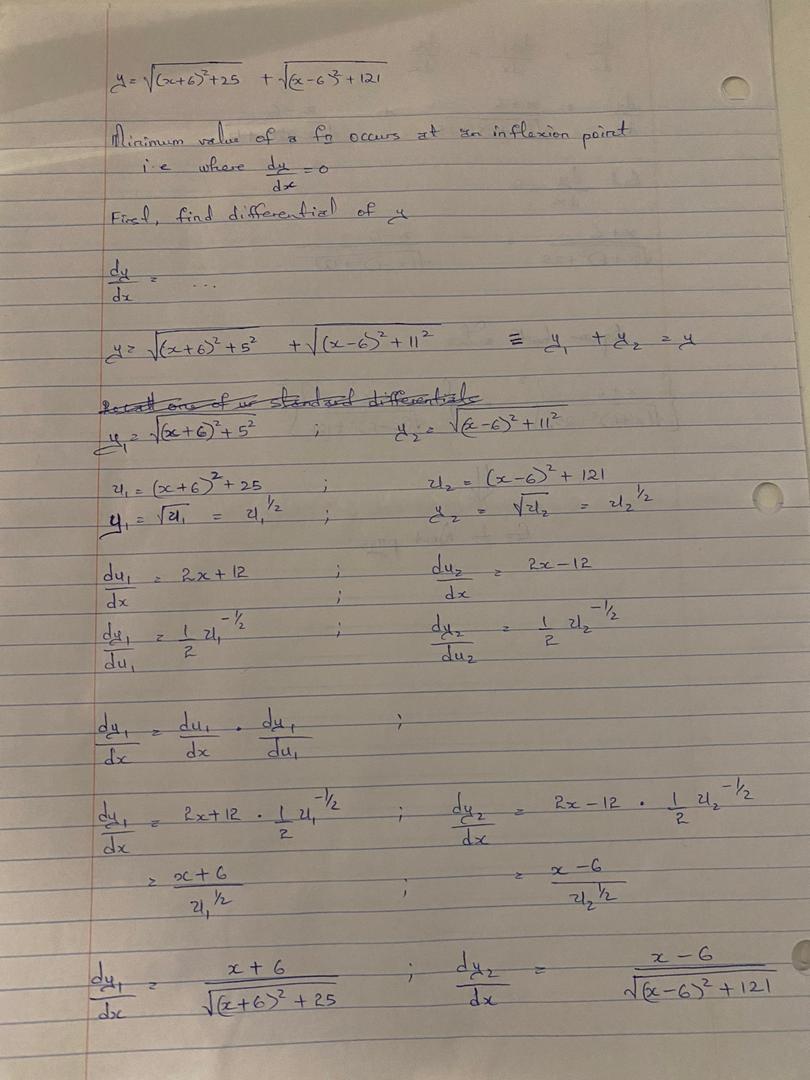 y = √(x+6)²+25 + √(x-6)²+121
Minimum value of a fn occurs at an inflexion point
i.e where dy/dx = 0
First, find differential of y
dy/dx = ...
y = √(x+6)²+5² + √(x-6)²+11² ≡ y₁ + y₂ = y
Recall one of our standard differentials
y₁ = √(x+6)²+5² ; y₂ = √(x-6)²+11²
u₁ = (x+6)²+25 ; u₂ = (x-6)²+121
y₁ = √u₁ = u₁^½ ; y₂ = √u₂ = u₂^½
du₁/dx = 2x+12 ; du₂/dx = 2x-12
;
dy₁/du₁ = 1/2 u₁^-½ ; dy₂/du₂ = 1/2 u₂^-½
dy₁/dx = du₁/dx · dy₁/du₁ ;
dy₁/dx = 2x+12 · 1/2 u₁^-½ ; dy₂/dx = 2x-12 · 1/2 u₂^-½
= x+6/u₁^½ ; = x-6/u₂^½
dy₁/dx = x+6/√(x+6)²+25 ; dy₂/dx = x-6/√(x-6)²+121